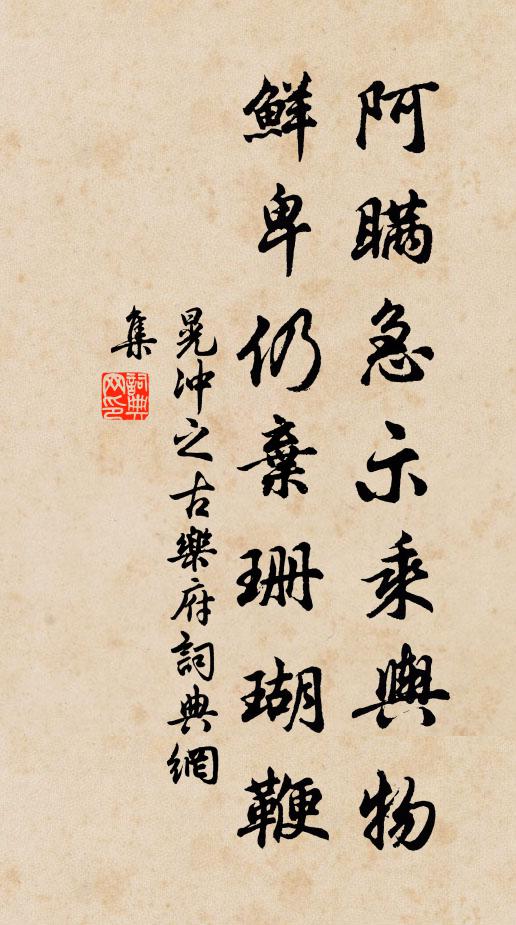 阿瞞急示乘輿物
鮮卑仍棄珊瑚鞭
晁沖之古樂府詞典網
集
詞典網印